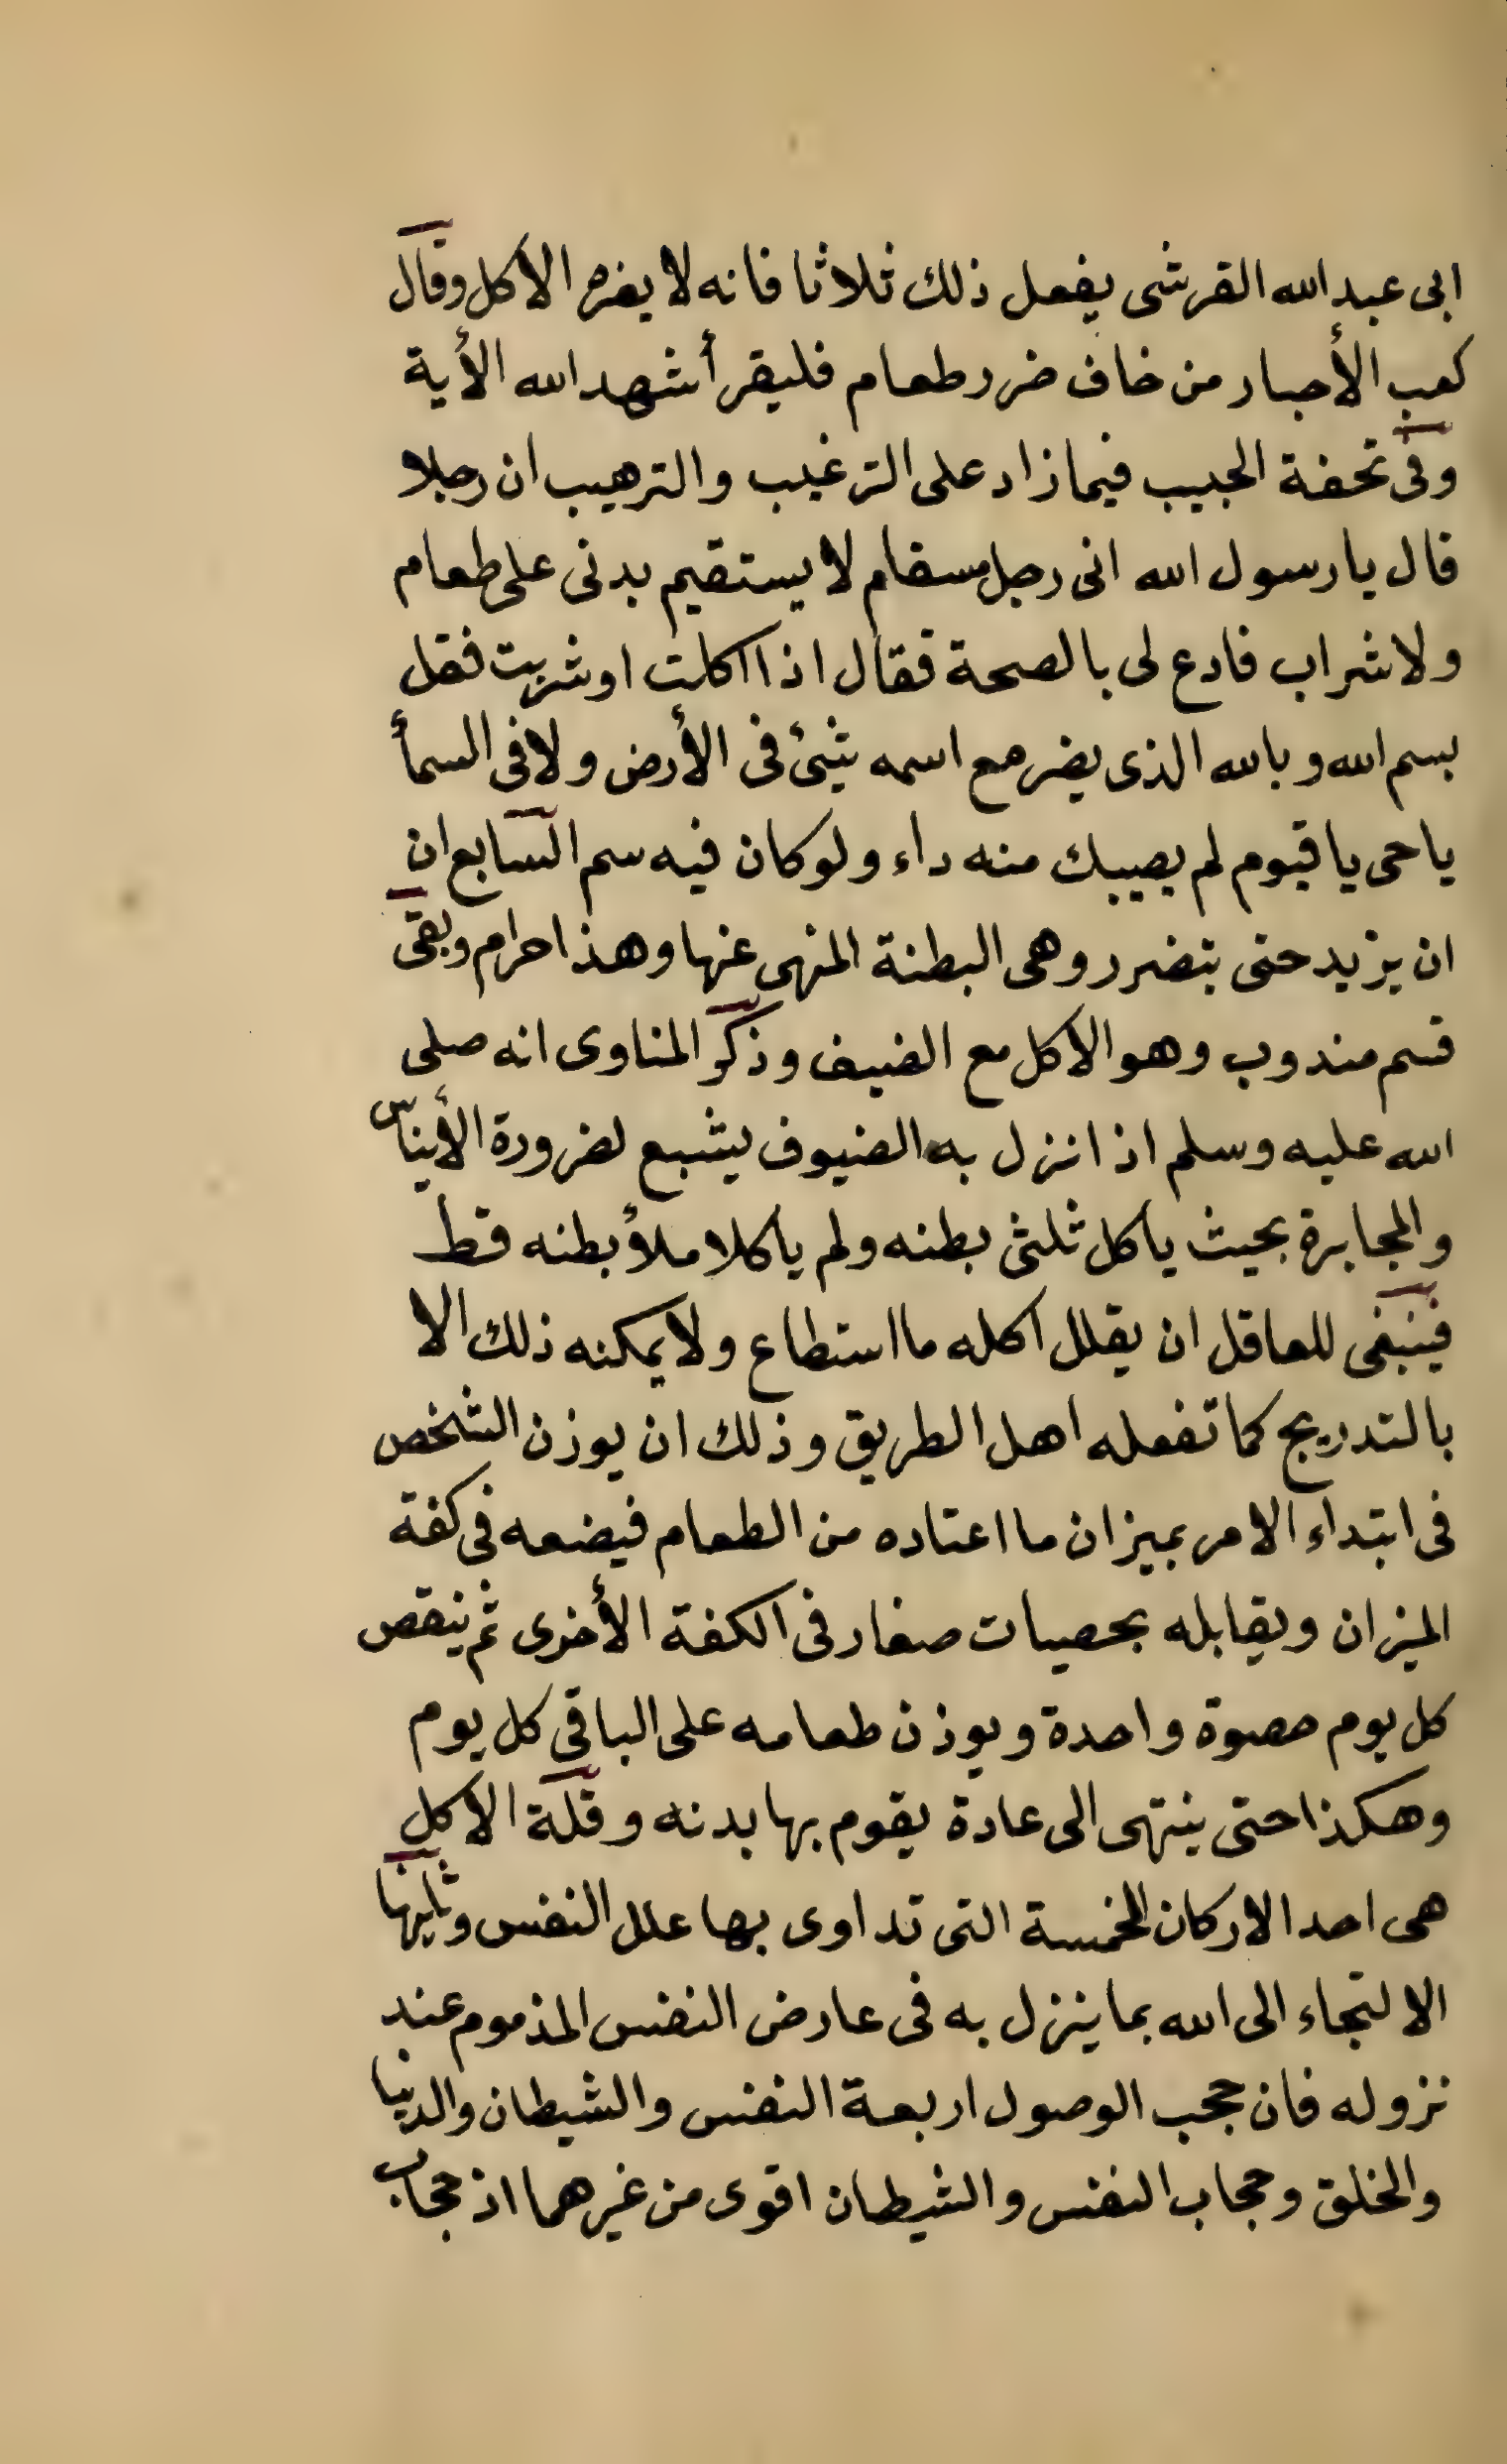 ابى عبد الله القرشى يفعل ذلك ثلاثا فانه لا يضره الاكل وقال
كعب الأحبار من خاف ضرر طعام فليقرأ شهد الله الأية
وفى تحفة الحبيب فيما زاد على الترغيب والترهيب ان رجلا
قال يا رسول الله انى رجل مسقام لا يستقيم بدنى على طعام
ولا شراب فادع لى بالصحة فقال اذا اكلت او شربت فقل
بسم الله وبالله الذى يضر مع اسمه شيئ فى الأرض ولا فى السمأ
يا حى يا قيوم لم يصيبك منه داء ولو كان فيه سم السابع ان
ان يزيد حتى يتضرر وهى البطنة المنهى عنها وهذا حرام وبقى
قسم مندوب وهو الاكل مع الضيف وذكر المناوى انه صلى
الله عليه وسلم اذا نزل به الضيوف يشبع لضرورة الأيناس
والمجابرة بحيث ياكل ثلثى بطنه ولم ياكلا ملأ بطنه قط
فينبغى للعاقل ان يقلل اكله ما استطاع ولا يمكنه ذلك الا
بالتدريج كما تفعله اهل الطريق وذلك ان يوزن الشخص
فى ابتداء الامر بميزان ما اعتاده من الطعام فيضعه فى كفة
الميزان ويقابله بحصيات صغار فى الكفة الأخرى ثم ينقص
كل يوم حصوة واحدة ويوزن طعامه على الباقى كل يوم
وهكذا حتى ينتهى الى عادة يقوم بها بدنه وقلة الاكل
هى احد الاركان الخمسة التى تداوى بها علل النفس وثانيها
الالتجاء الى الله بما ينزل به فى عارض النفس المذموم عند
نزوله فان حجب الوصول اربعة النفس والشيطان والدنيا
والخلق وحجاب النفس والشيطان اقوى من غيرهما اذ حجاب